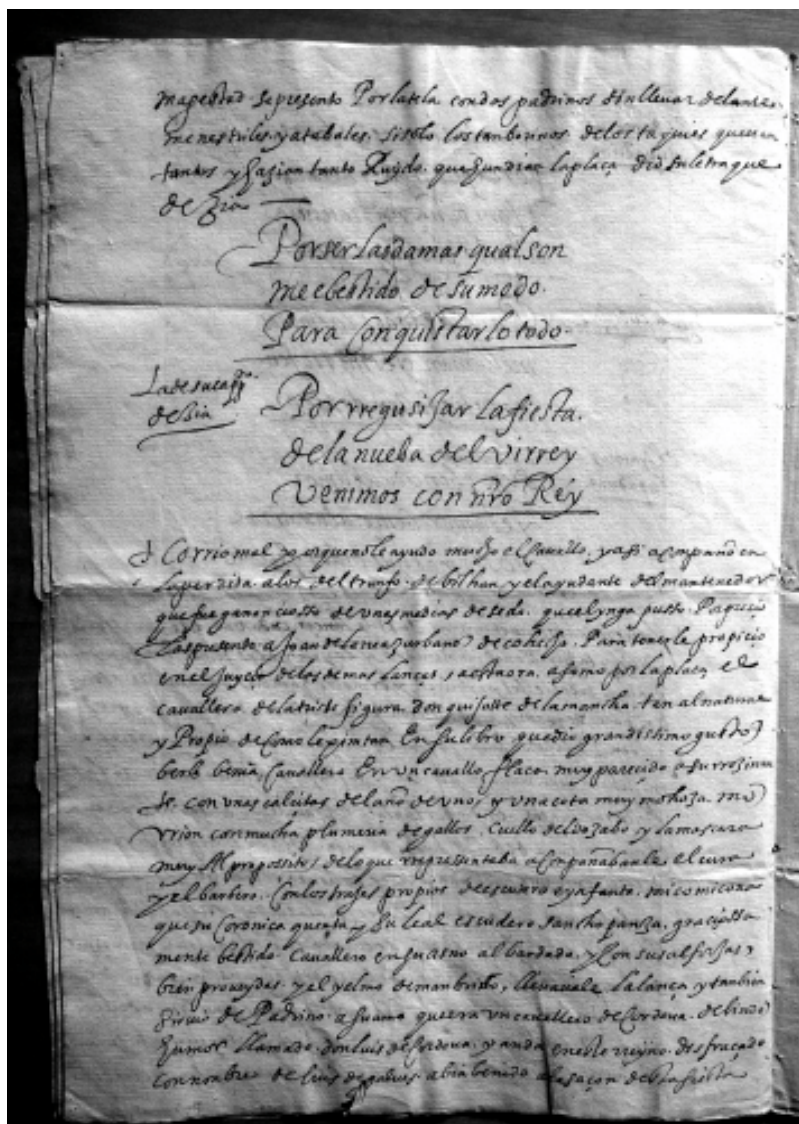 magestad se presento Por la tela con dos padrinos sin llevar delante
menestriles y atabales, si solo los tanborinos de los taquies que eran
tantos y hazian tanto Ruydo que hundian la plaça dio su letra que
dezia
Por ser las damas qual son
me e bestido de su modo
Para Conquistarlo todo
La de su
dezia
Por rregusijar la fiesta
de la nueba del virrey
venimos con nro Rey
Corrio mal porque no le ayudo mucho el Cavallo, y asi acompaño en
la perdida a los del triunfo de bilhan y el ayudante del mantenedor
que fue ganoncioso de unas medias de seda que el ynga puso Pa
Las presento a Joan de Larrea zurbano de cohecho Para tenerle propicio
en el Juycio de las demas lanças a esta ora asomo por la plaça el
cavallero de la triste figura don quijotte de la mancha tan al natural
y Propio de Como le pintan En su libro que dio grandissimo gusto
berle benia Cavallero En un cavallo flaco muy parecido a su rrozinan
te, con unas calçitas del año de uno, y una cota muy mohoza, mo
rrion con mucha plumeria de gallos, Cuello del dozabo y la mascara
muy Al propossito de lo que rrepresentaba acompañabanle el cura
y el barbero, Con los trajes propios de escudero e ynfanta micomicona
que su Coronica quenta, y su leal escudero sancho panza, graciossa
mente bestido Cavallero en su asno albardado, y Con sus alforjas
bien proveydas y el yelmo de manbrino, llevavale la lança y tanbien
sirvio de Padrino a su amo que era un cavallero de Cordova de lindo
humor llamado don luis de Cordova, y anda en este rreyno disfraçado
con nonbre de luis de galves abia benido a la saçon desta fiesta